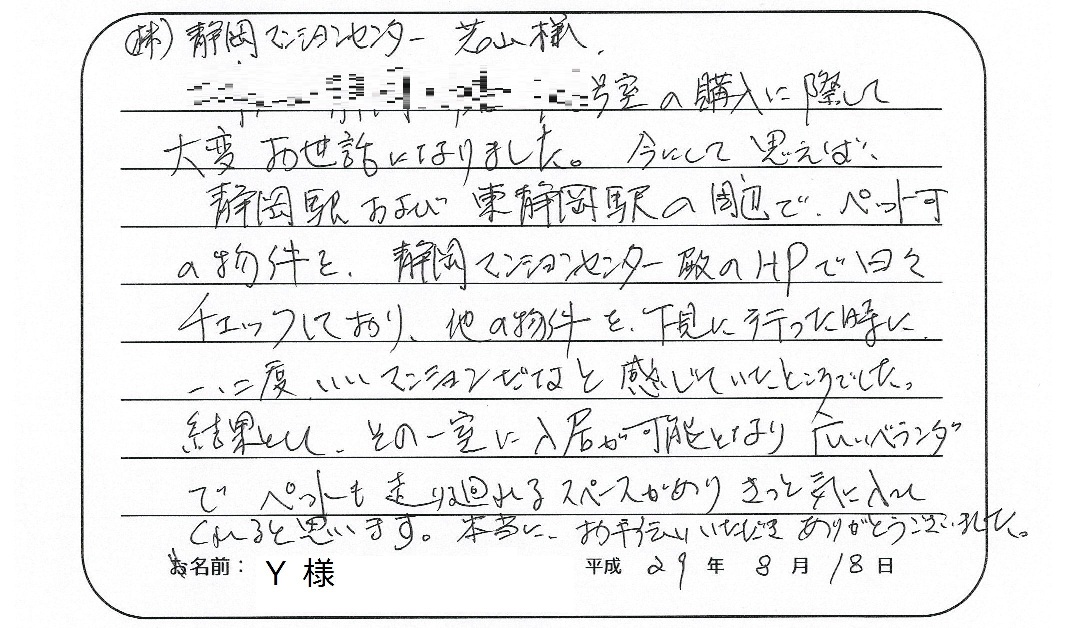 (株)静岡マンションセンター 芝山様、
号室の購入に際して
大変お世話になりました。今にして思えば、
静岡駅および東静岡駅の周辺で、ペット可
の物件を、静岡マンションセンター殿のHPで日々
チェックしており、他の物件を、下見に行った時に
一、二度、いいマンションだなと感じていたところでした。
結果として、その一室に入居が可能となり 広いベランダ
で ペットも走り回れるスペースがあり きっと気に入って
くれると思います。本当に、お手伝いいただき ありがとうございました。
お名前: Y 様 平成 29 年 8 月 18 日